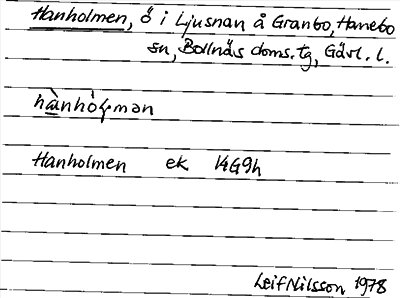 Hanholmen, ö i Ljusnan å Granbo, Hanebo
sn, Bollnäs doms. tg, Gävl. l.
hànhòɽmən
Hanholmen ek 14G9h
Leif Nilsson 1978